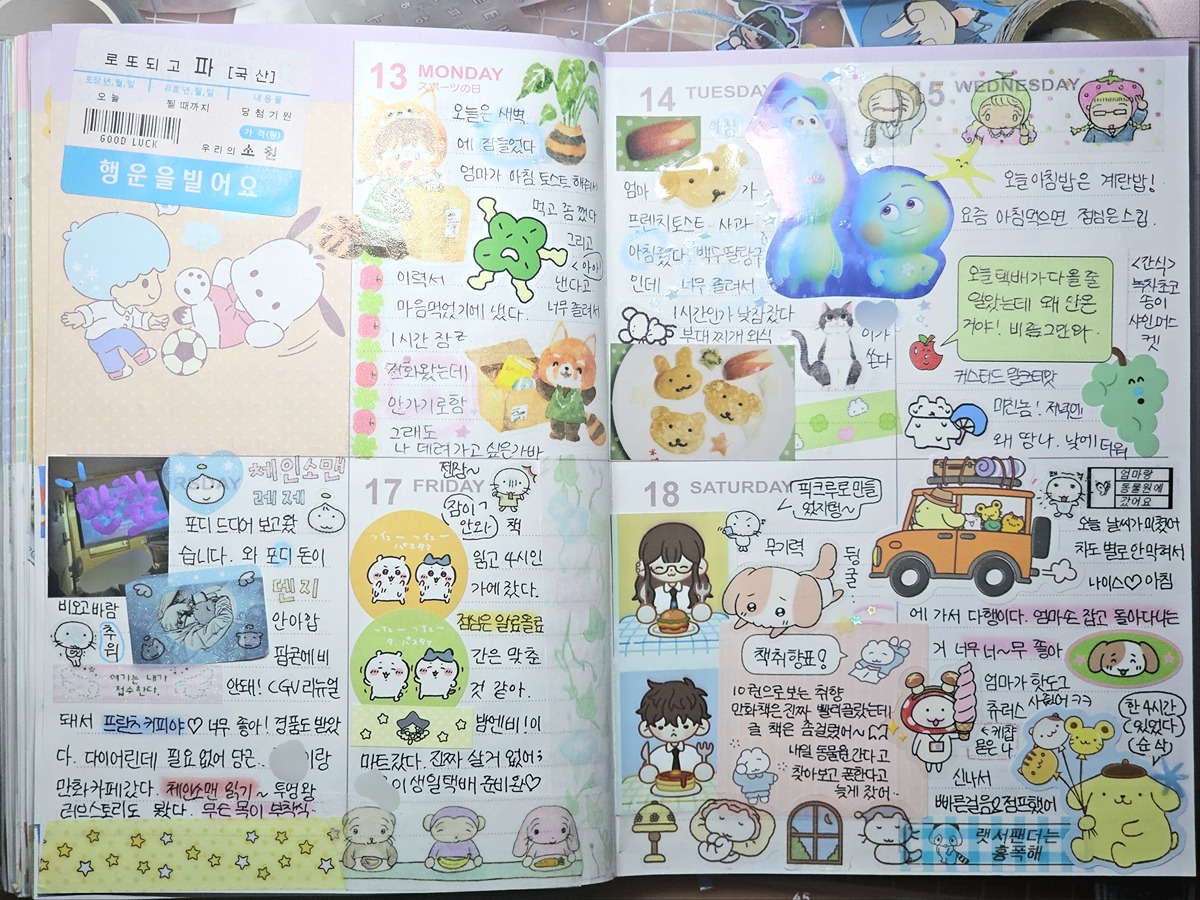 로또되고 파 [국산]
포장년,월,일
유효년,월,일
내용물
오늘
될 때까지
당첨기원
가격(원)
GOOD LUCK
우리의 소원
행운을 빌어요
13 MONDAY
スポーツの日
오늘은 새벽
에 잠들었다
엄마가 아침 토스트 해줘서
먹고 좀 쨌다
그리고
<아아>
이력서
낸다고
마음먹었기에 냈다.
너무 졸려서
1시간 잠ㄷ
전화왔는데
안가기로함
그래도
나 데려가고 싶은가봐
14 TUESDAY
아침
엄마
가
프렌치토스트 사과
아침줬다. 백수딸랑구
인데 너무 졸려서
1시간인가 낮잠잤다
부대찌개 외식
이가
쑤신다
15 WEDNESDAY
오늘 아침밥은 계란밥!
요즘 아침먹으면 점심은 스킵.
오늘 택배가 다 올 줄
알았는데 왜 안온
거야! 비름그만와.
<간식>
녹차초코
송이
샤인머스
켓
커스터드 밀크티맛
미친놈! 저녁엔
왜 땀나. 낮에 더워
만화
체인소맨
레제
포디 드디어 보고왔
습니다. 와 포디 돈이
덴지
안아깝
비오고 바람
추워
팝콘에 비
여기는 내가
접수한다.
안돼! CGV 리뉴얼
돼서 프란츠 커피야♡ 너무 좋아! 경품도 받았
다. 다이어린데 필요 없어 당근..
이랑
만화카페갔다. 체인소맨 읽기~ 투명왕
러브스토리도 봤다. 무슨 목이 부착식.
17 FRIDAY
젠장~
(잠이 ㄱ
안와)
책
읽고 4시인
가에 잤다.
점심은 알료올료
간은 맞춘
것 같아.
밤엔 비! 이
마트갔다. 진짜 살거 없어;
이 생일택배 준비완♡
18 SATURDAY
픽크루로 만들
었지렁~
무기력
뒹
굴
책취향표!
10권으로 보는 취향
만화책은 진짜 빨리골랐는데
글 책은 좀 걸렸어~
내일 동물원 간다고
찾아보고 폰한다고
늦게 잤어..
엄마랑
동물원에
갔어요
오늘 날씨가 미쳤어
차도 별로 안 막혀서
나이스♡ 아침
에 가서 다행이다. 엄마손 잡고 돌아다니는
거 너무 너~무 좋아
엄마가 핫도그
츄러스 사줬어 ㅋㅋ
케찹
묻은 나
(한 4시간
있었다)
(순삭)
신나서
빠른걸음으로 점프했어
랫서팬더는
흉폭해